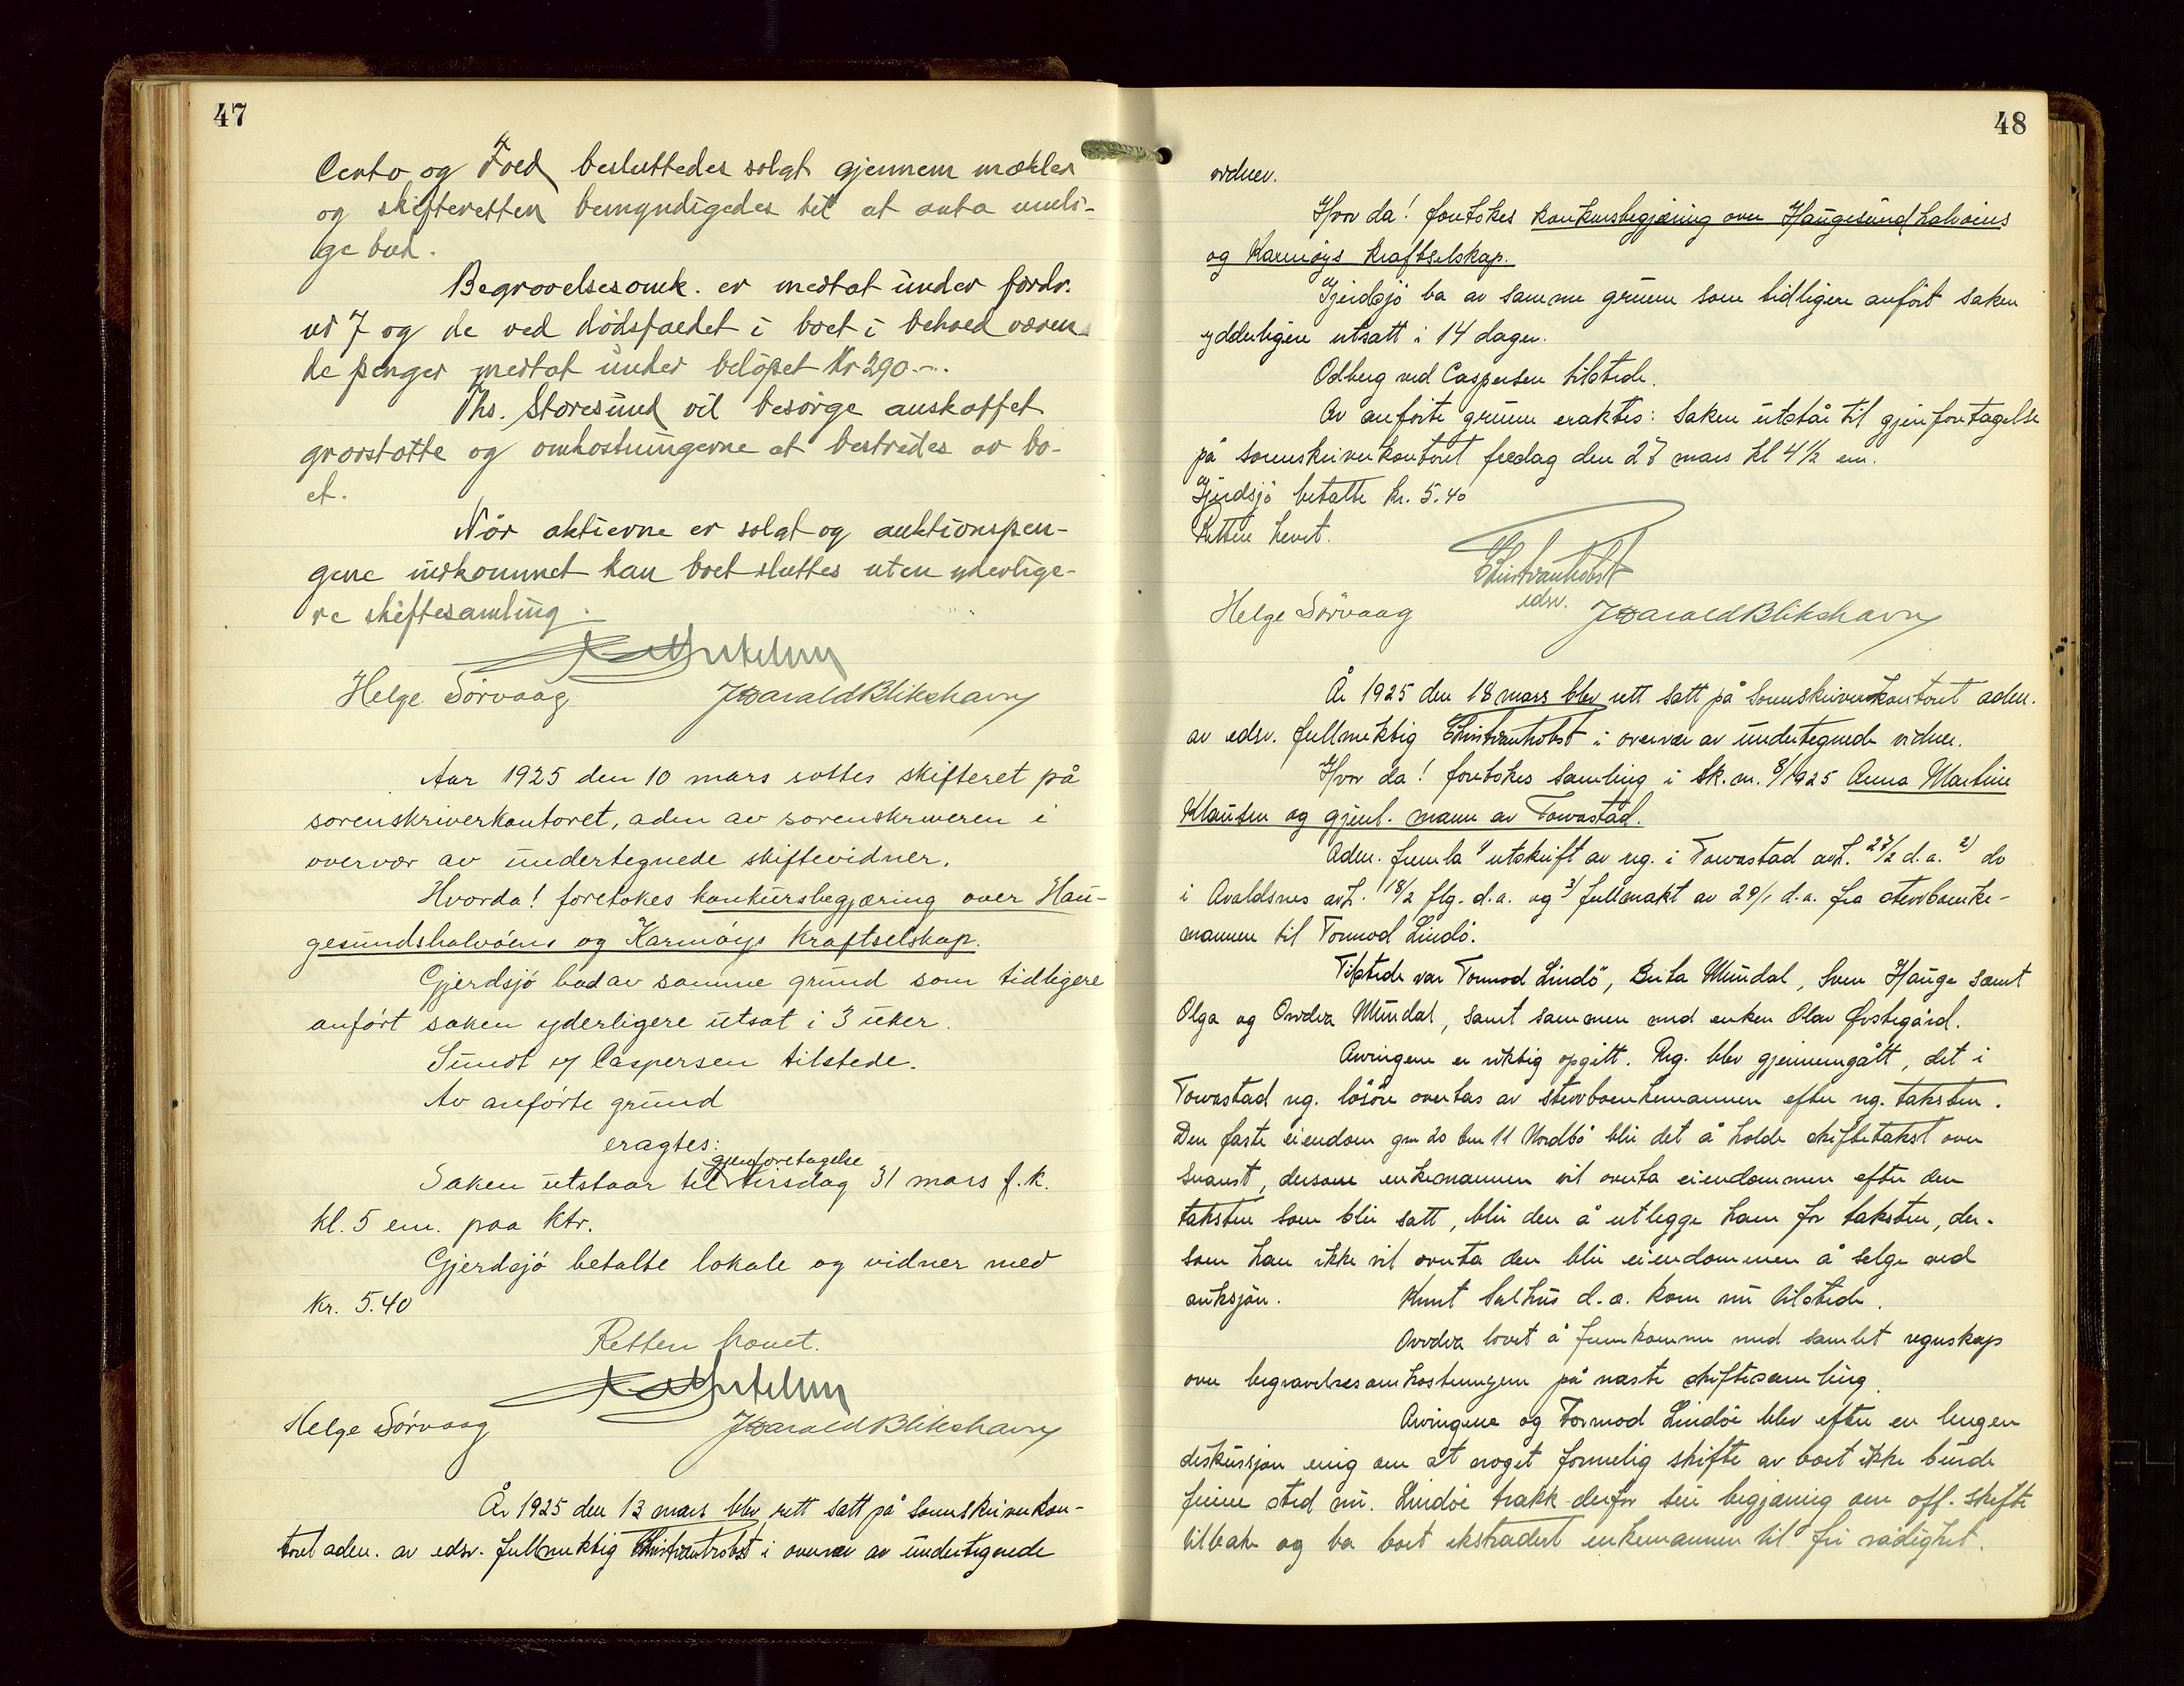 47
Cento og Foed besluttedes solgt gjennem mækler
og skifteretten bemyndigedes til at anta muli-
ge bud.
Begravelsesomk. er medtat under fordr.
nr 7 og de ved dødsfaldet i boet i behold væren-
de penger medtat under beløpet kr 290.-.
Ths. Storesund vil besørge anskaffet
gravstøtte og omkostningerne at bestrides av bo-
et.
Når aktierne er solgt og auktionspen-
gene indkommet kan boet sluttes uten yderlige-
re skiftesamling.
Helge Sörvaag Harald Blikshavn
Aar 1925 den 10 mars sattes skifteret på
sorenskriverkontoret, adm av sorenskriveren i
overvær av undertegnede skiftevidner.
Hvorda! foretokes konkursbegjæring over Hau-
gesundshalvöens og Karmöys Kraftselskap.
Gjerdsjö bad av samme grund som tidligere
anfört saken yderligere utsat i 3 uker.
Sundt og Caspersen tilstede.
Av anförte grund
eragtes:
gjenforetagelse
Saken utstaar til tirsdag 31 mars f.k.
kl. 5 em. paa ktr.
Gjerdsjö betalte lokale og vidner med
kr. 5.40
Retten hævet.
Helge Sörvaag Harald Blikshavn
År 1925 den 13 mars blev rett satt på Sorenskriverkon-
toret adm. av edsv. fullmektig i overvær av undertegnede
48
vidner.
Hvor da! foretokes konkursbegjæring over Haugesundhalvöens
og Karmöys Kraftselskap.
Gjerdsjö ba av samme grunn som tidligere anfört saken
ydderligere utsatt i 14 dager.
Odberg ved Caspersen tilstede.
Av anförte grunn eraktes: Saken utstår til gjenforetagelse
på sorenskriverkontoret fredag den 27 mars kl 4 1/2 em.
Gjerdsjö betalte kr. 5.40
Retten hevet.
edsv.
Helge Sörvaag Harald Blikshavn
År 1925 den 18 mars blev rett satt på Sorenskriverkontoret adm.
av edsv. fullmektig i overvær av undertegnede vidner.
Hvor da! foretokes samling i sk.m. 8/1925 Anna Martine
Klausen og gjenl. mann av Torvastad.
Adm. fremla 1) utskrift av reg. i Torvastad avh. 27/2 d.a. 2) do
i Avaldsnes avh. 18/2 flg. d.a. og 3) fullmakt av 29/1 d.a. fra stervboenke-
mannen til Tormod Lindö.
Tilstede var Tormod Lindö, Berta Mundal, Sven Hauge samt
Olga og Ovidia Mundal, samt sammen med enken Olav Øvstegård.
Arvingene er riktig opgitt. Reg. blev gjennemgått, det i
Torvastad reg. lösöre overtas av stervboenkemannen efter reg. taksten.
Den faste eiendom gnr 20 bnr 11 Nordbö blir det å holde skiftetakst over
snarest, dersom enkemannen vil overta eiendommen efter den
taksten som blir satt, blir den å utlegge ham for taksten, der-
som han ikke vil overta den blir eiendommen å selge ved
auksjon. Knut Salhus d.a. kom nu tilstede.
Ovidia lovet å fremkomme med samlet regnskap
over begravelsesomkostningene på næste skiftesamling.
Arvingene og Tormod Lindöe blev efter en lengere
diskussjon enig om at noget formelig skifte av boet ikke burde
finne sted nu. Lindöe trakk derfor sin begjæring om off. skifte
tilbake og ba boet ekstradert enkemannen til fri rådighet.